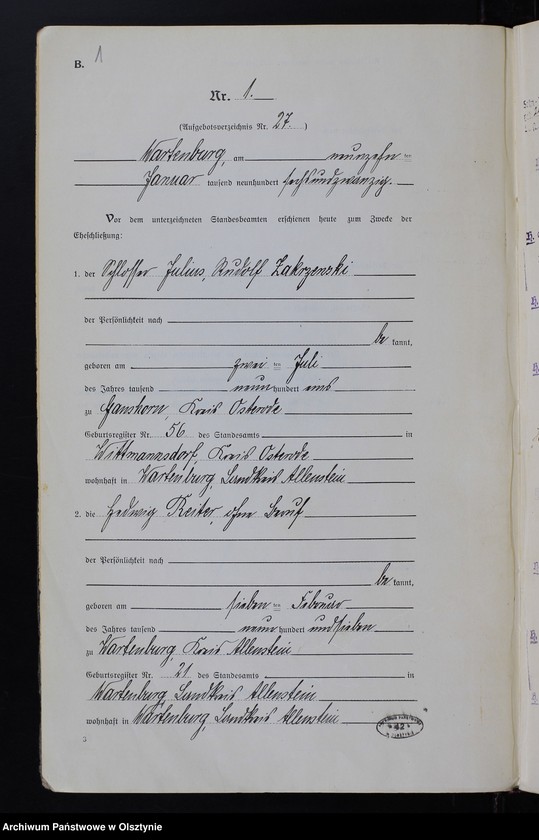 B. 1
Nr. 1.
(Aufgebotsverzeichnis Nr. 27.)
Wartenburg, am neunzehn ten
Januar tausend neunhundert sechsundzwanzig.
Vor dem unterzeichneten Standesbeamten erschienen heute zum Zwecke der
Eheschließung:
1. der Schlosser Julius, Rudolf Zakrzenski
der Persönlichkeit nach
be kannt,
geboren am zwei ten Juli
des Jahres tausend neun hundert eins
zu Ganshorn, Kreis Osterode
Geburtsregister Nr. 56 des Standesamts in
Wittmannsdorf, Kreis Osterode
wohnhaft in Wartenburg, Landkreis Allenstein
2. die Hedwig Reiter, ohne Beruf
der Persönlichkeit nach
be kannt,
geboren am sieben ten Februar
des Jahres tausend neun hundert und sieben
zu Wartenburg, Kreis Allenstein
Geburtsregister Nr. 21 des Standesamts in
Wartenburg, Landkreis Allenstein
wohnhaft in Wartenburg, Landkreis Allenstein
3
42
Archiwum Państwowe w Olsztynie